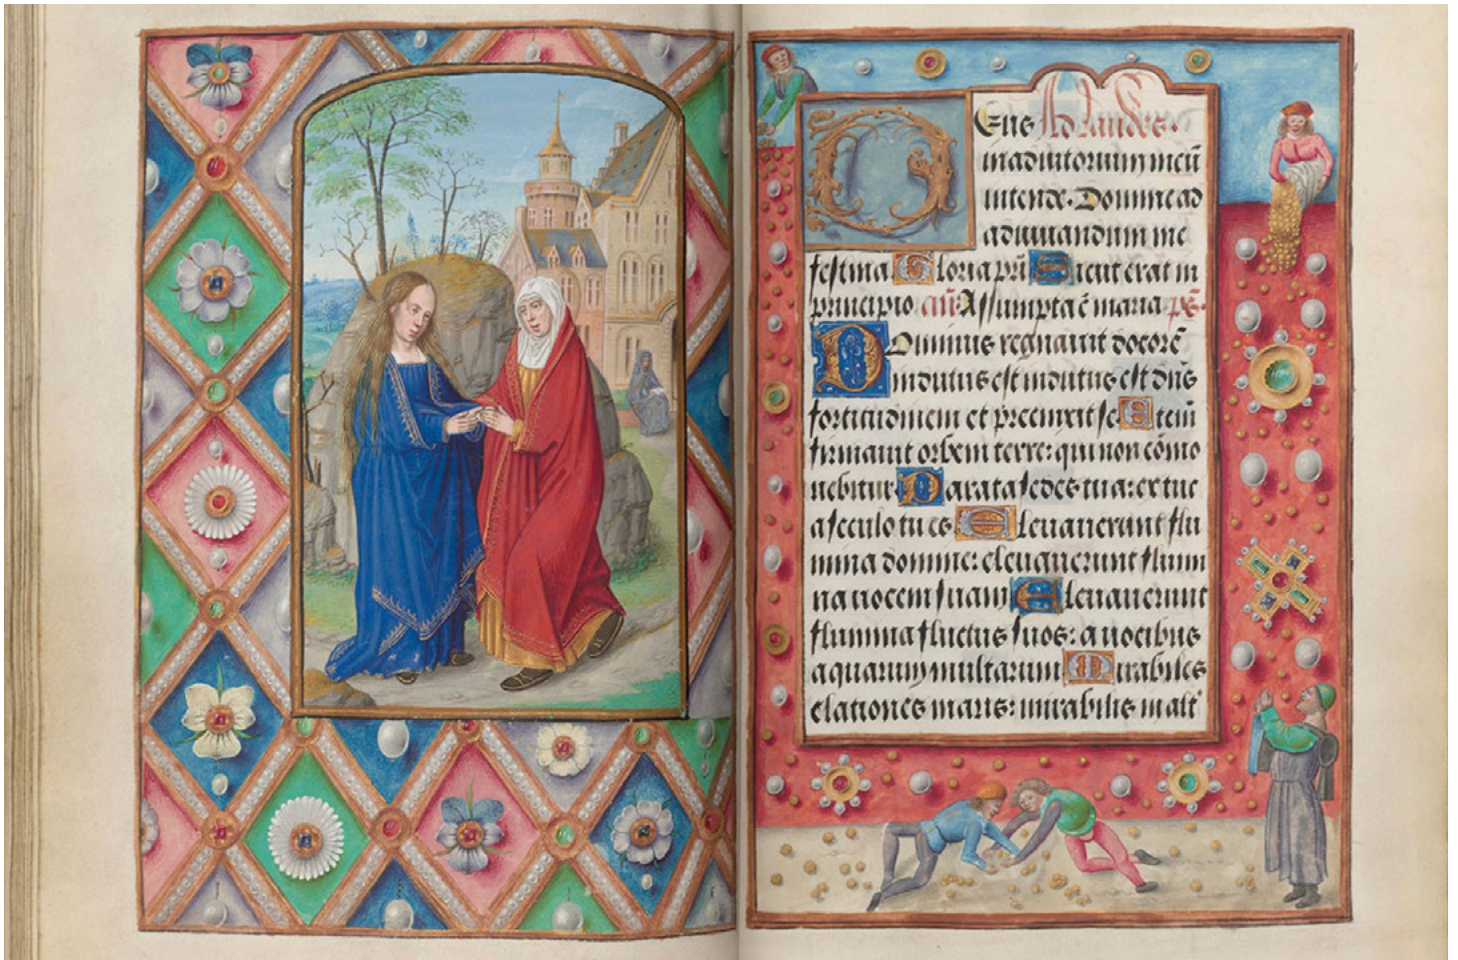 DEus Ad laudes.
in adiutorium meū
intende. Domine ad
adiuuandum me
festina Gloria prī Sicut erat in
principio añ Assumpta ē maria ps.
Dominus regnauit decorē
indutus est indutus est dñs
fortitudinem et precinxit se Eteīn
firmauit orbem terre: qui non cōmo
uebitur Parata sedes tua: ex tuc
a seculo tu es Eleuauerunt flu
mina domine: eleuauerunt flumi
na uocem suam Eleuauerunt
flumina fluctus suos: a uocibus
aquarum multarum Mirabiles
elationes maris: mirabilis in alt